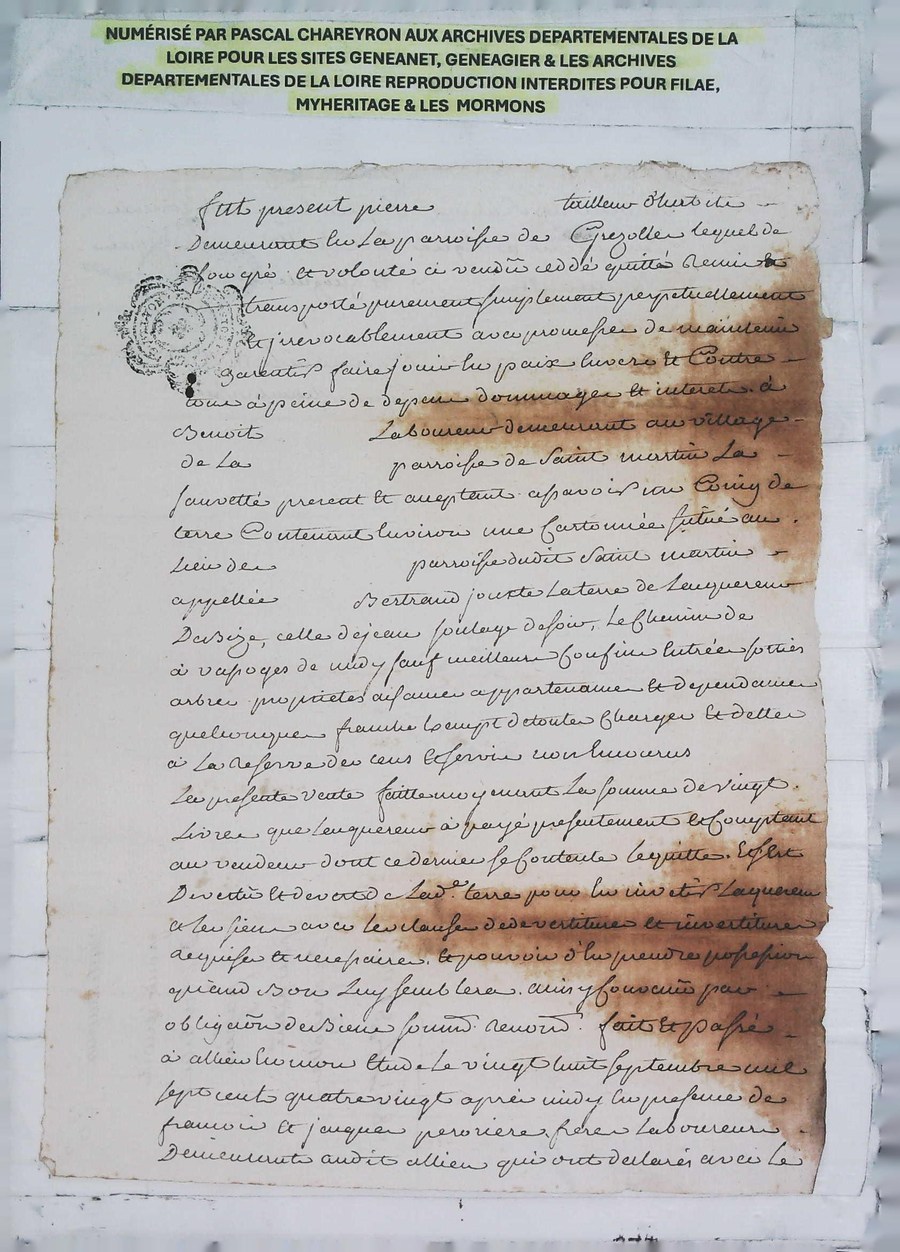 NUMÉRISÉ PAR PASCAL CHAREYRON AUX ARCHIVES DEPARTEMENTALES DE LA
LOIRE POUR LES SITES GENEANET, GENEAGIER & LES ARCHIVES
DEPARTEMENTALES DE LA LOIRE REPRODUCTION INTERDITES POUR FILAE,
MYHERITAGE & LES MORMONS
fut present pierre tailleur d'habits
Demeurant en La parroisse de Grezolles lequel de
son gré et volonté a vendu ceddé quitté remis et
transporté purement simplement perpetuellement
et jrrevocablement avec promesse de maintenir
garentir faire jouir en paix envers et Contre
tous à peine de depens dommages et interets à
Benoit Laboureur demeurant au village
de La parroisse de Saint martin La
sauvetté present et aceptant assavoir un Coing de
terre Contenant Environ une Cartonnée situé au
Lieu des parroisse dudit Saint martin
appellée Bertrand jouxte La terre de Lacquereur
De Bize, celle de jean soulage de soir, Le Chemin de
à de midy sauf meilleurs Confins Entrées sorties
arbres proprietés aisances appartenances et dependances
quelconques franche Exempt de toutes Charges et dettes
à La reserve des cens et servis non
La presente vente faitte moyenant La somme de vingt
Livres que Lacquereur à payé presentement et Comptant
au vendeur dont ce dernier se Contente le quitte. Et s'est
Devestu et La d.e terre pour En investir Laquereur
et les siens avec les clauses de devestiture et investiture
requises et necessaires. et pouvoir d'En prendre possession
quand Bon Luy semblera. ainsy Convenu par
obligaōn de Biens soumd. renond. fait et passé
à allieu En mon Etude Le vingt huit septembre mil
sept cent quatre vingt après midy En presence de
francois et jacques freres Laboureurs
Demeurants audit allieu qui ont declarés avec Le